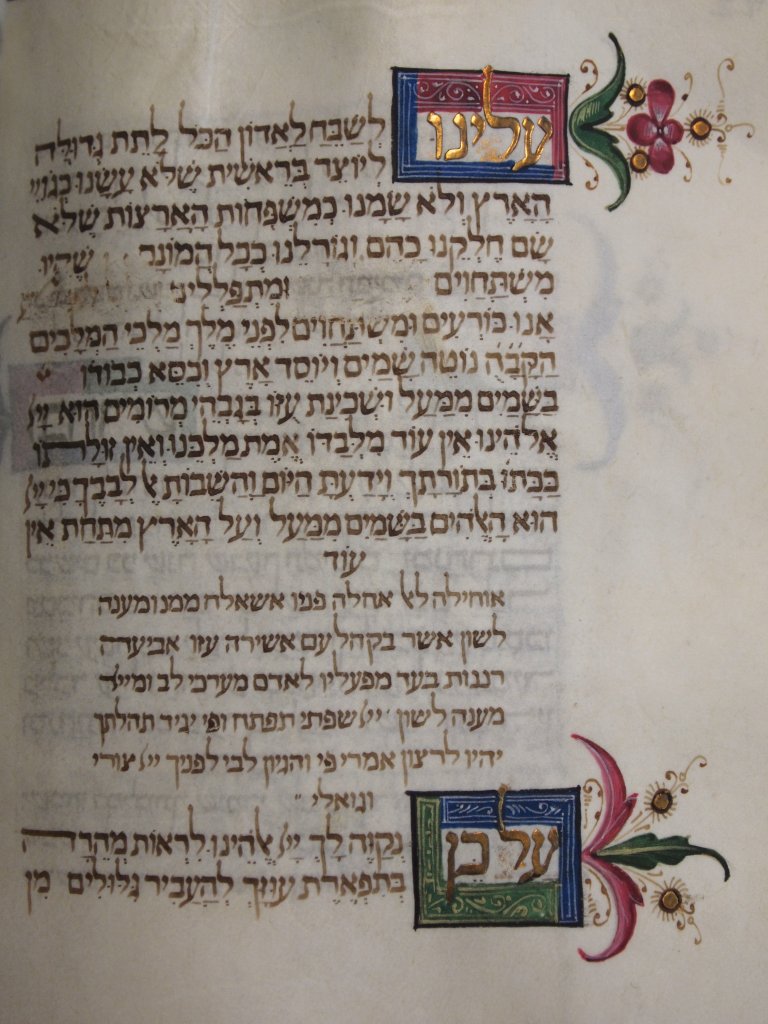 עלינו
לְשַׁבֵּחַ לַאֲדוֹן הַכֹּל לָתֵת גְּדוּלָּה
לְיוֹצֵר בְּרֵאשִׁית שֶׁלֹּא עָשָׂנוּ כְּגוֹיֵי
הָאָרֶץ וְלֹא שָׂמָנוּ כְּמִשְׁפְּחוֹת הָאֲרָצוֹת שֶׁלֹּא
שָׂם חֶלְקֵנוּ כָּהֶם וְגוֹרָלֵנוּ כְּכָל הֲמוֹנָם שֶׁהֵם
מִשְׁתַּחֲוִים וּמִתְפַּלְלִים
אָנוּ כּוֹרְעִים וּמִשְׁתַּחֲוִים לִפְנֵי מֶלֶךְ מַלְכֵי הַמְּלָכִים
הַקָּבָּ״ה נוֹטֶה שָׁמַיִם וְיוֹסֵד אָרֶץ וְכִסֵּא כְבוֹדוֹ
בַּשָּׁמַיִם מִמַּעַל וּשְׁכִינַת עֻזּוֹ בְּגָבְהֵי מְרוֹמִים הוּא יְיָ
אֱלֹהֵינוּ אֵין עוֹד מִלְּבַדּוֹ אֱמֶת מַלְכֵּנוּ וְאֵין זוּלָתוֹ
כַּכָּתוּב בְּתוֹרָתָךְ וְיָדַעְתָּ הַיּוֹם וַהֲשֵׁבוֹתָ אֶל לְבָבֶךָ כִּי יְיָ
הוּא הָאֱלֹהִים בַּשָּׁמַיִם מִמַּעַל וְעַל הָאָרֶץ מִתַּחַת אֵין
עוֹד
אוחילה לאל אחלה פניו אשאלה ממנו מענה
לשון אשר בקהל עם אשירה עזו אביעה
רננות בעד מפעליו לאדם מערכי לב ומייי
מענה לשון ייי שפתי תפתח ופי יגיד תהלתך
יהיו לרצון אמרי פי והגיון לבי לפניך ייי צורי
וגואלי
על כן
נְקַוֶּה לָּךְ יְיָ אֱלֹהֵינוּ לִרְאוֹת מְהֵרָה
בְּתִפְאֶרֶת עֻזָּךְ לְהַעֲבִיר גִּלּוּלִים מִן